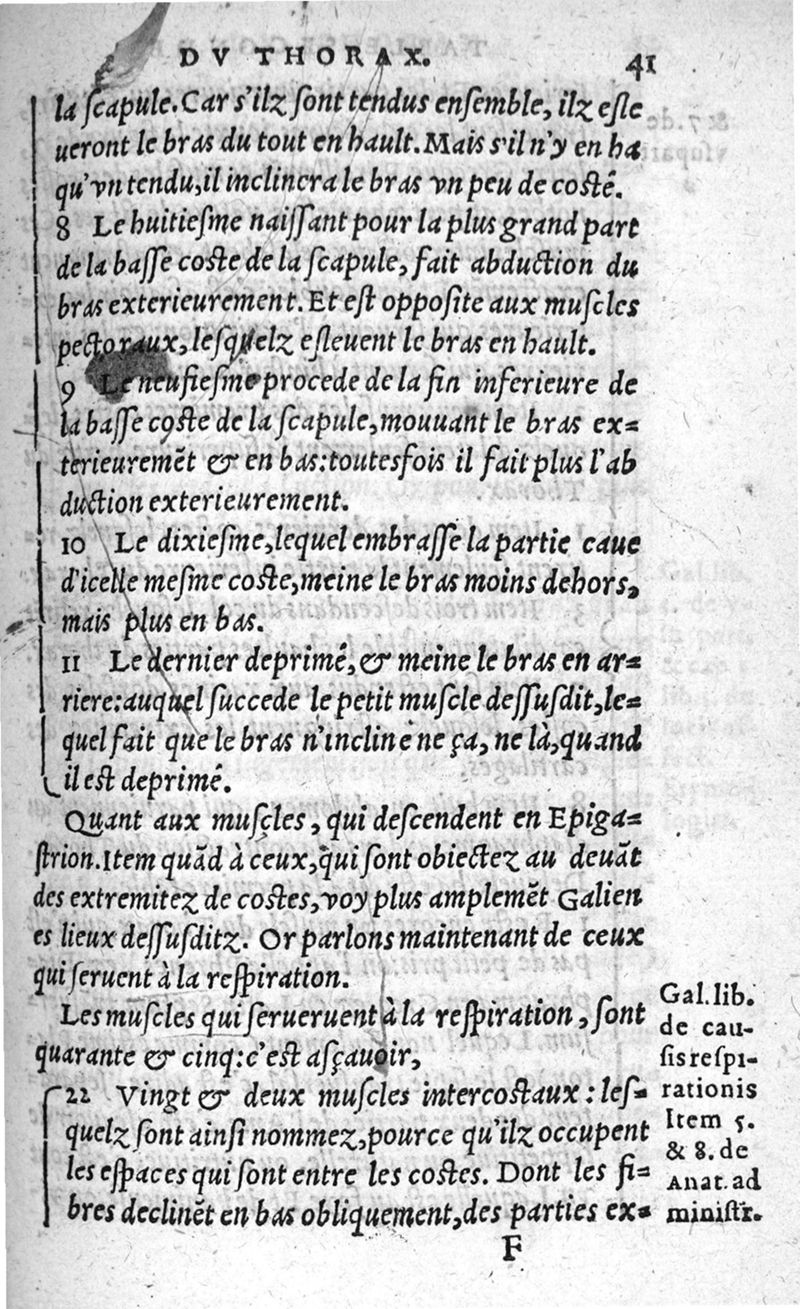 DV THORAX.
41
la ſcapule. Car s'ilz ſont tendus enſemble, ilz eſle
ueront le bras du tout en hault. Mais s'il n'y en ha
qu'vn tendu, il inclinera le bras vn peu de coſté.
8 Le huitieſme naiſſant pour la plus grand part
de la baſſe coſte de la ſcapule, fait abduction du
bras exterieurement. Et eſt oppoſite aux muſcles
pectoraux, leſquelz eſleuent le bras en hault.
9 Le neufieſme procede de la fin inferieure de
la baſſe coſte de la ſcapule, mouuant le bras ex=
terieuremēt & en bas: toutesfois il fait plus l'ab
duction exterieurement.
10 Le dixieſme, lequel embraſſe la partie caue
d'icelle meſme coſte, meine le bras moins dehors,
mais plus en bas.
11 Le dernier deprimé, & meine le bras en ar=
riere: auquel ſuccede le petit muſcle deſſuſdit, le=
quel fait que le bras n'incline ne ça, ne là, quand
il eſt deprimé.
Quant aux muſcles, qui deſcendent en Epiga=
ſtrion. Item quād à ceux, qui ſont obiectez au deuāt
des extremitez de coſtes, voy plus amplemēt Galien
es lieux deſſuſditz. Or parlons maintenant de ceux
qui ſeruent à la reſpiration.
Les muſcles qui ſerueruent à la reſpiration, ſont
quarante & cinq: c'eſt aſçauoir,
22 Vingt & deux muſcles intercoſtaux: leſ=
quelz ſont ainſi nommez, pource qu'ilz occupent
les eſpaces qui ſont entre les coſtes. Dont les fi=
bres declinēt en bas obliquement, des parties ex=
F
Gal. lib.
de cau-
ſis reſpi-
rationis
Item 5.
& 8. de
Anat. ad
miniſtr.